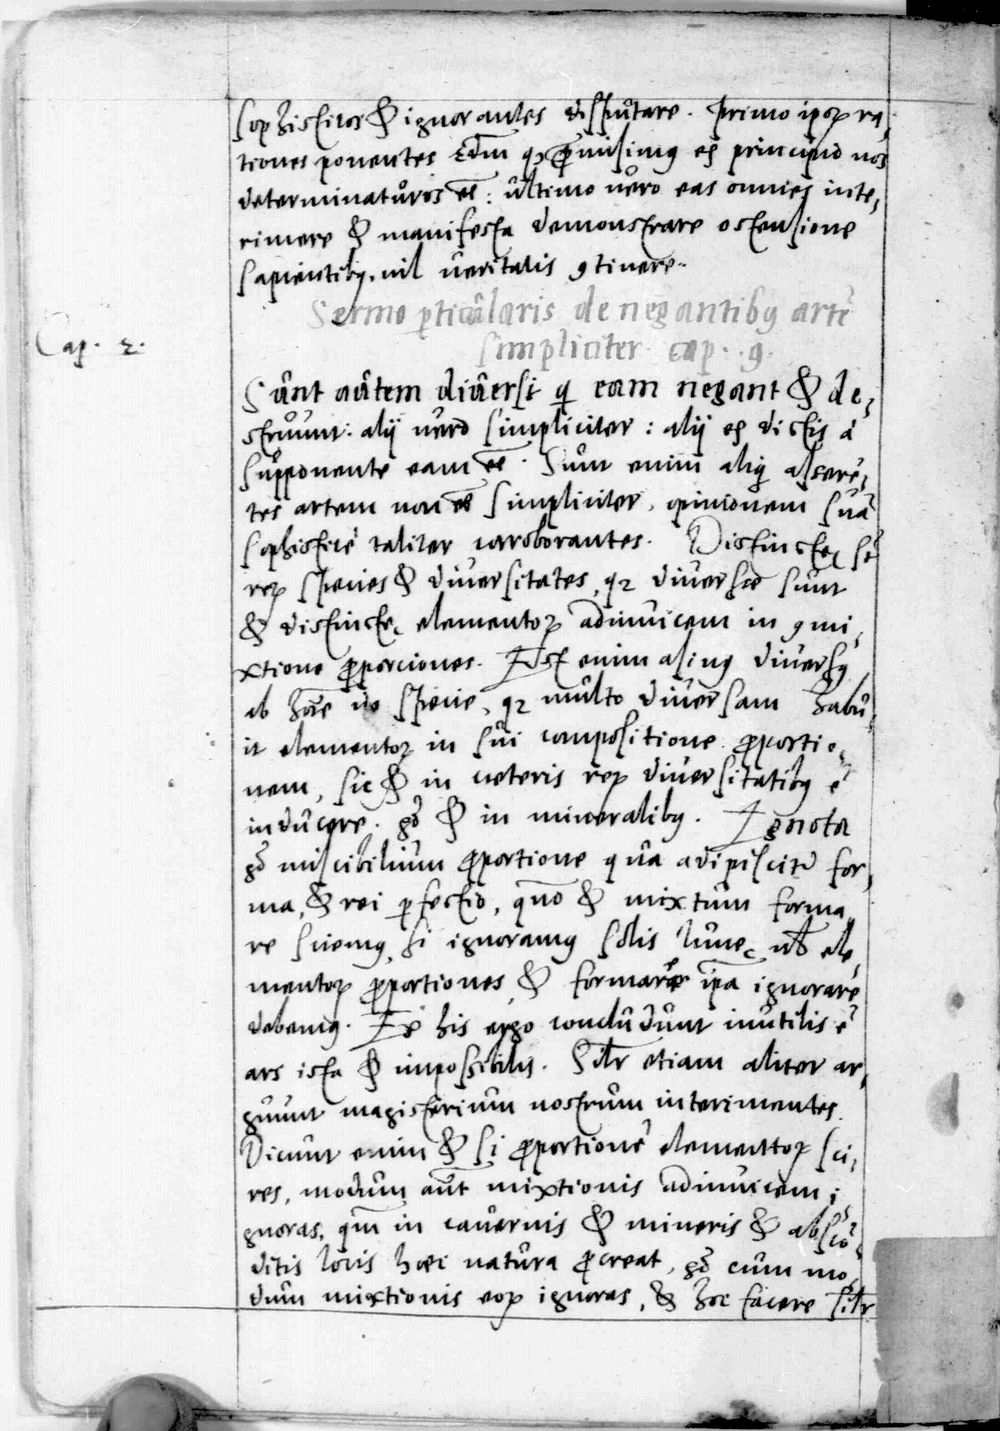 sophisticos & ignorantes disputare. Primo ipoꝝ ra,
tiones ponentes scdm qꝫ ꝓmisimꝰ ex principio nos
determinaturos eē: ultimo uero eas omnies inte,
rimere & manifesta demonstrare ostensione
sapientibꝰ. nil ueritatis ꝯtinere.
Sermo ꝑticularis de negantibꝰ artē
simpliciter cap. .9.
Cap. 2.
Sunt autem diuersi qi eam negant & de,
struunt: alij uero simpliciter: alij ex dictis a
supponente eam eē. Sunt enim aliqi asserē,
tes artem non eē simpliciter, opinionem suā
sophisticē taliter corroborantes. Distinctę st̄
reꝝ species & diuersitates, qꝛ diuersæ sunt
& distinctę elementoꝝ adinuicem in ꝯmi,
xtione ꝓporciones. Est enim asinꝰ diuersꝰ
ab hoīe in specie, qꝛ multo diuersam habu,
it elementoꝝ in sui compositione ꝓportio,
nem, sic & in ceteris reꝝ diuersitatibꝰ ē
inducere. gͦ & in mineralibꝰ. Ignota
gͦ miscibilium ꝓportione qua adipiscitr̄ for,
ma, & rei ꝑfectio, quō & mixtum forma,
re sciemꝰ, si ignoramꝰ solis lunę ul̄ ele,
mentoꝝ ꝓportiones, & formare ip̄a ignorare
debemꝰ. Ex his ergo concludunt inutilis ē
ars ista & impossibilis. Sil̄r etiam aliter ar,
guunt magisterium nostrum interimentes.
Dicunt enim & si ꝓportionē elementtoꝝ sci,
res, modum aūt mixtionis adinuicem i,
gnoras, qm̄ in cauernis & mineris & abscō,
ditis locis hæc natura ꝓcreat, gͦ cum mo,
dum mixtionis eoꝝ ignoras, & hoc facere sil̄r